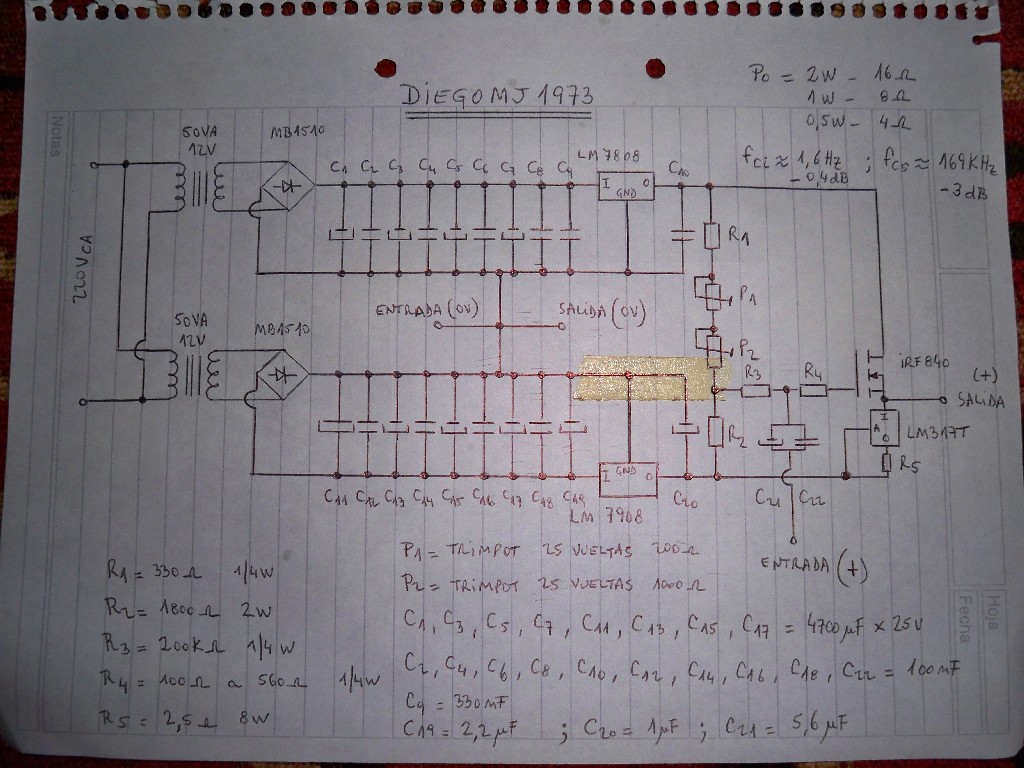 DiEGOMJ 1973
Po = 2W - 16Ω
1W - 8Ω
0,5W - 4Ω
fci ≈ 1,6Hz ; fcs ≈ 169KHz
-0,4dB
-3dB
Notas
50VA
12V
MB1510
C1 C2 C3 C4 C5 C6 C7 C8 C9
LM7808
I O
GND
C10
R1
P1
220VCA
ENTRADA (0V)
SALiDA (0V)
50VA
12V
MB1510
P2
R3
R4
iRF840
(+)
SALiDA
R2
I
A
O
LM317T
R5
GND
I O
C11 C12 C13 C14 C15 C16 C17 C18 C19
LM 7908
C20
C21 C22
ENTRADA (+)
R1 = 330Ω 1/4W
R2 = 1800Ω 2W
R3 = 200KΩ 1/4W
R4 = 100Ω a 560Ω 1/4W
R5 = 2,5Ω 8W
P1 = TRiMPOT 25 VUELTAS 200Ω
P2 = TRiMPOT 25 VUELTAS 1000Ω
C1, C3, C5, C7, C11, C13, C15, C17 = 4700µF x 25V
C2, C4, C6, C8, C10, C12, C14, C16, C18, C22 = 100nF
C9 = 330nF
C19 = 2,2µF ; C20 = 1µF ; C21 = 5,6µF
Hoja
Fecha